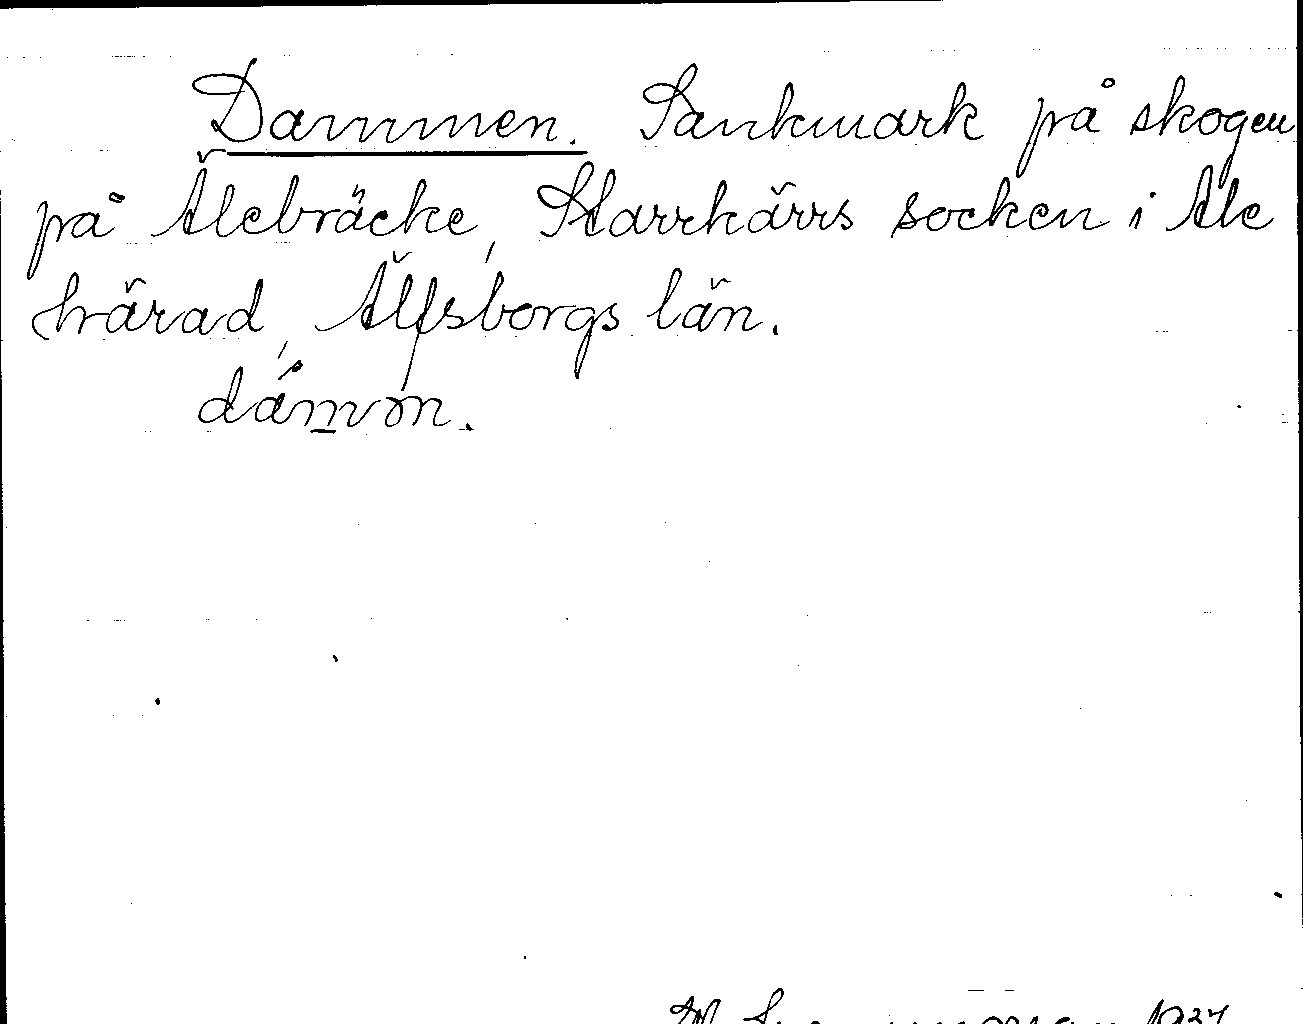 Dammen. Sankmark på skogen
på Älebräcke, Starrkärrs socken i Ale
härad, Älfsborgs län.
1937